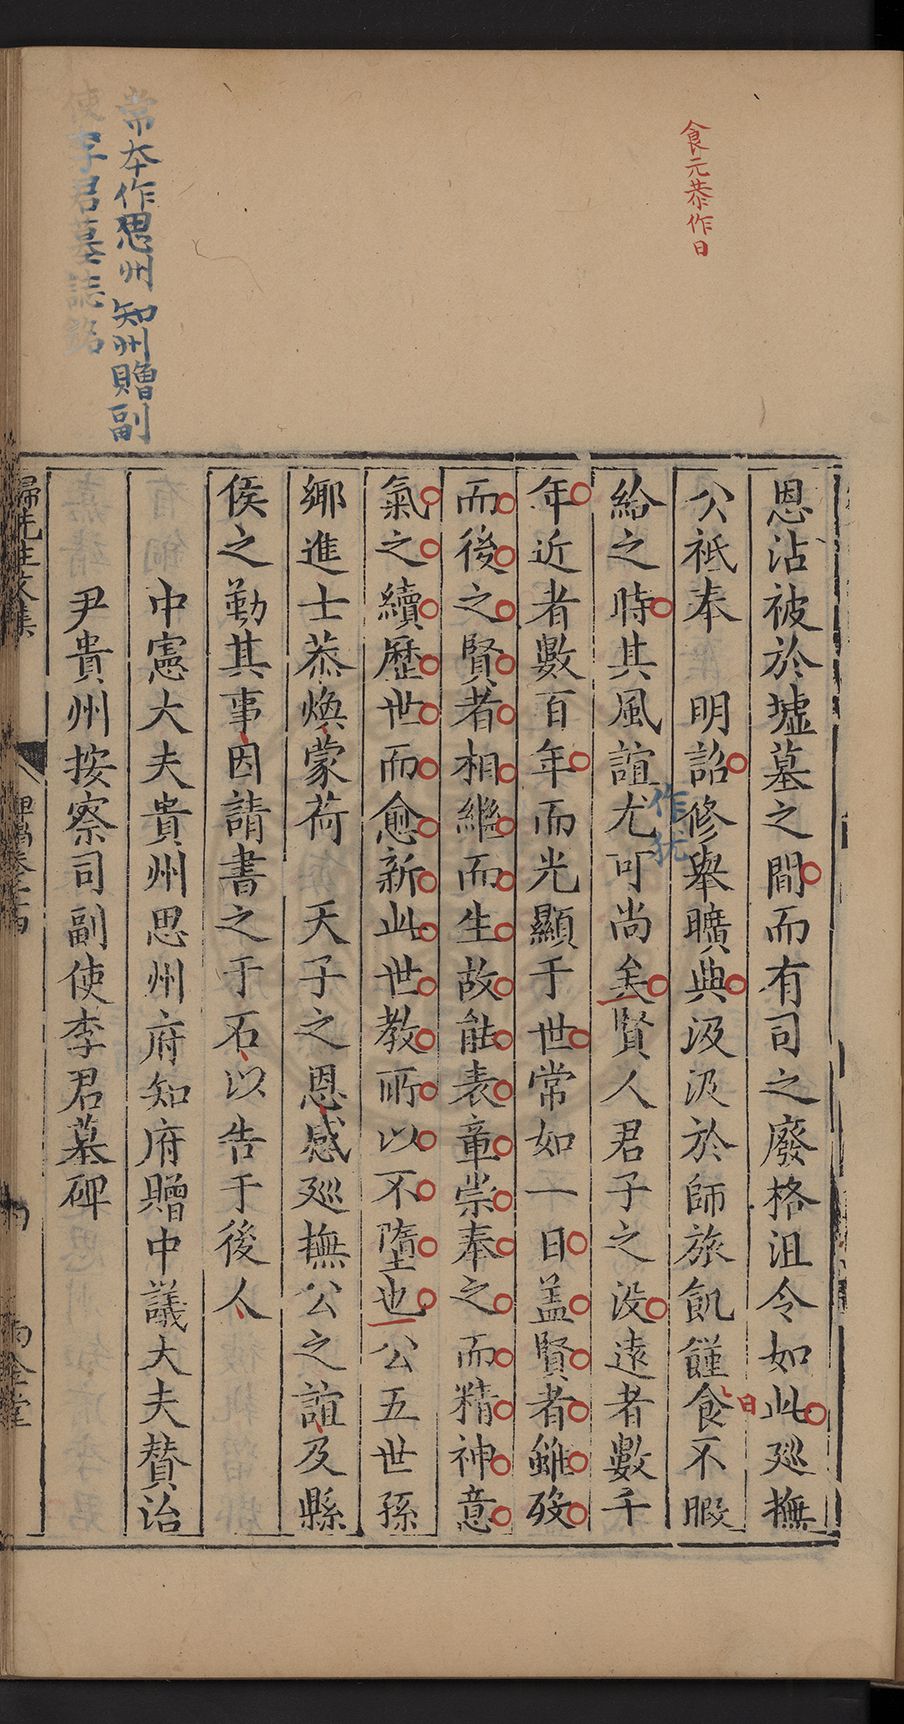 食元恭作日
恩沾被於墟墓之間而有司之廢格沮令如此廵撫
公祗奉　明詔修舉曠典汲汲於師旅飢饉食不暇
日
給之時其風誼尤可尚矣賢人君子之没遠者數千
作犹
年近者數百年而光顯于世常如一日盖賢者雖歿
而後之賢者相繼而生故能表章崇奉之而精神意
氣之續歷世而愈新此世教所以不墮也公五世孫
鄉進士恭煥蒙荷　天子之恩感廵撫公之誼及縣
侯之勤其事因請書之于石以告于後人
常本作思州知州贈副
使李君墓誌銘
中憲大夫貴州思州府知府贈中議大夫賛治
尹貴州按察司副使李君墓碑
歸先生文集